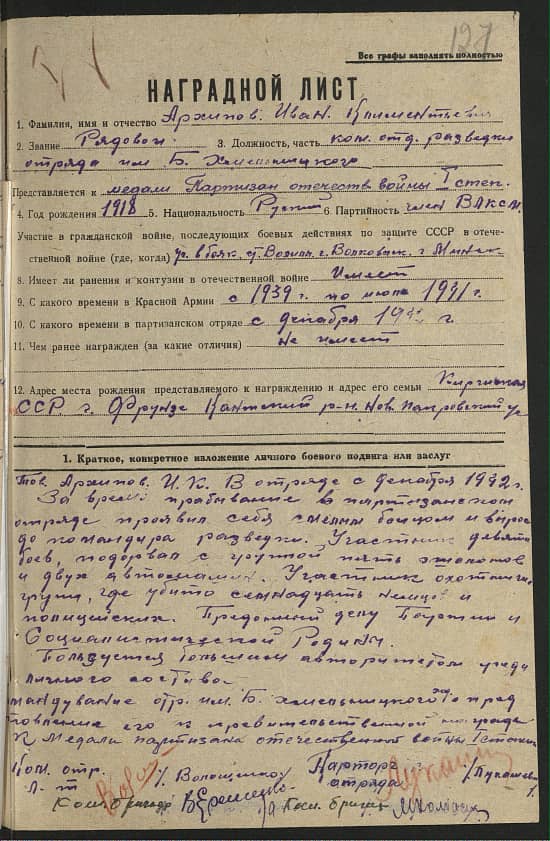 127
Все графы заполнять полностью
НАГРАДНОЙ ЛИСТ
1. Фамилия, имя и отчество Архипов Иван Климентьевич
2. Звание Рядовой 3. Должность, часть ком. отд. разведки
отряда им Б. Хмельницкого
Представляется к медали Партизан отечеств войны I степ.
4. Год рождения 1918 5. Национальность Русский 6. Партийность член ВЛКСМ
Участие в гражданской войне, последующих боевых действиях по защите СССР в отече-
ственной войне (где, когда) г. Волковыск, г. Минск
8. Имеет ли ранения и контузии в отечественной войне Имеет
9. С какого времени в Красной Армии с 1939 г. по июль 1941 г.
10. С какого времени в партизанском отряде с декабря 194 г.
11. Чем ранее награжден (за какие отличия) не имеет
12. Адрес места рождения представляемого к награждению и адрес его семьи Киргизская
ССР г. Фрунзе Кантский р-н
1. Краткое, конкретное изложение личного боевого подвига или заслуг
Тов. Архипов. И. К. В отряде с декабря 1942 г.
За время прабывание в партизанском
отряде проявил себя смелым бойцом и вырос
до командира разведки. Участник девяти
боев, подорвал с группой пять эшелонов
и двух автомашин. Участник
групп, где убито семнадцать немцев и
полицейских. Преданный делу Партии и
Социалистической Родины.
Пользуется большим авторитетом среди
личного состава.
мандование отр. им. Б. Хмельницкого
его к правительственной награде
к Медали партизана отечественной войны I степени
Ком. отр. Парторг
Л-т /Волощик отряда /Лукашев
Ком. бригады Ком. бриг